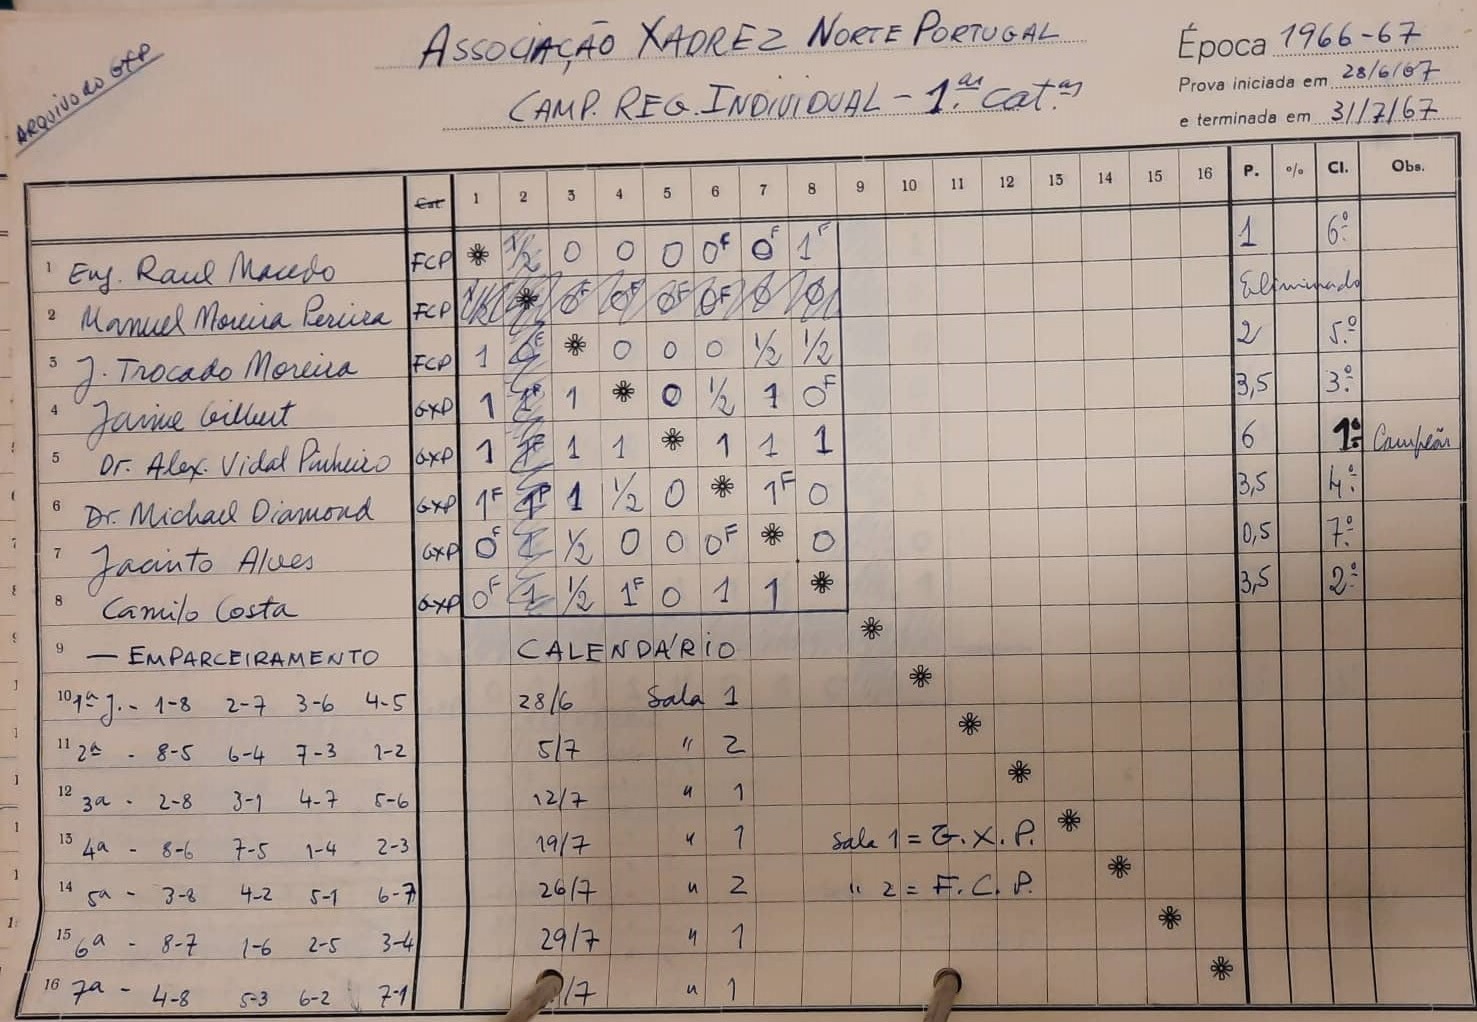 ARQUIVO do GXP
ASSOCIAÇÃO XADREZ NORTE PORTUGAL
CAMP. REG. INDIVIDUAL - 1.as cat.as
Época 1966-67
Prova iniciada em 28/6/67
e terminada em 31/7/67
Cat 1 2 3 4 5 6 7 8 9 10 11 12 13 14 15 16 P. % Cl. Obs.
1 Eng. Raul Macedo FCP * 1/2 0 0 0 0F 0F 1F 1 6º
2 Manuel Moreira Pereira FCP 1/2 * 0F 0F 0F 0F 0 0 Eliminado
3 J. Trocado Moreira FCP 1 0F * 0 0 0 1/2 1/2 2 5.º
4 Jaime Gilbert GXP 1 1F 1 * 0 1/2 1 0F 3,5 3º
5 Dr. Alex. Vidal Pinheiro GXP 1 1F 1 1 * 1 1 1 6 1º Campeão
6 Dr. Michael Diamond GXP 1F 1F 1 1/2 0 * 1F 0 3,5 4º
7 Jacinto Alves GXP 0F 1 1/2 0 0 0F * 0 0,5 7º
8 Camilo Costa GXP 0F 1 1/2 1F 0 1 1 * 3,5 2º
9 — EMPARCEIRAMENTO CALENDÁRIO *
10 1ª J. - 1-8 2-7 3-6 4-5 28/6 Sala 1 *
11 2ª - 8-5 6-4 7-3 1-2 5/7 " 2 *
12 3a - 2-8 3-1 4-7 5-6 12/7 " 1 *
13 4a - 8-6 7-5 1-4 2-3 19/7 " 1 Sala 1 = G.X.P. *
14 5a - 3-8 4-2 5-1 6-7 26/7 " 2 " 2 = F.C.P. *
15 6a - 8-7 1-6 2-5 3-4 29/7 " 1 *
16 7a - 4-8 5-3 6-2 7-1 /7 " 1 *